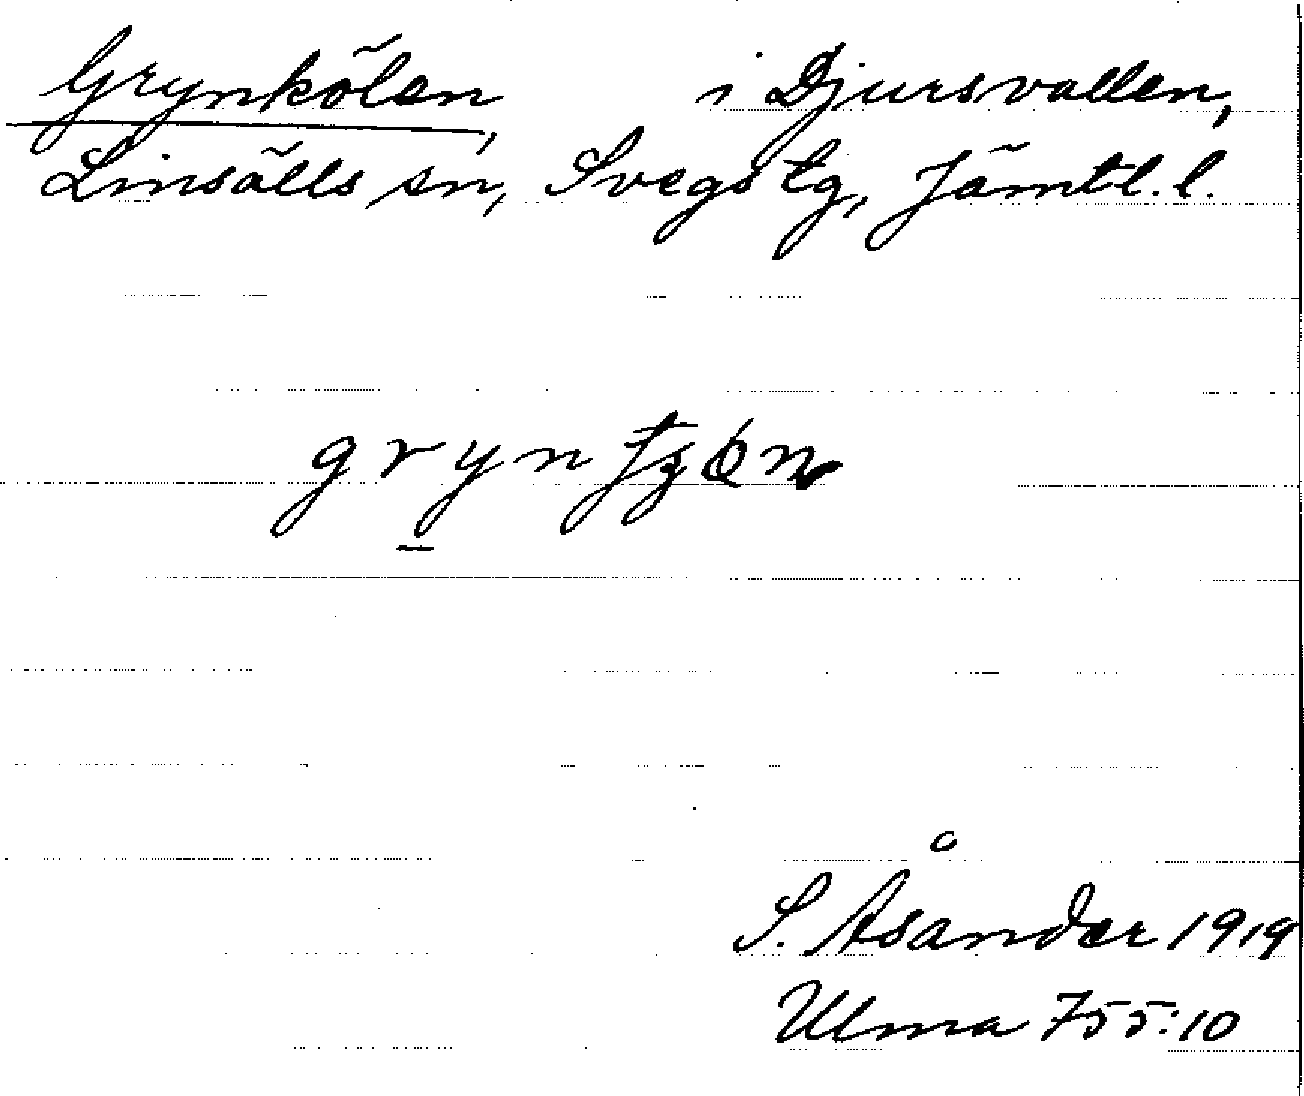 Grynkölen, i Djursvallen,
Linsälls sn, Svegs tg, Jämtl. l.
S. Åsander 1919
Ulma 755:10